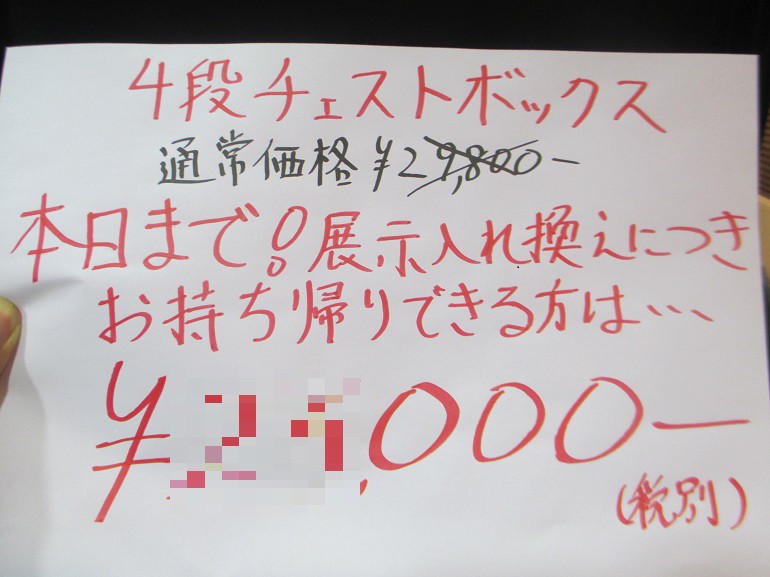 4段チェストボックス
通常価格¥29,800-
本日まで!展示入れ換えにつき
お持ち帰りできる方は…
,000-
(税別)